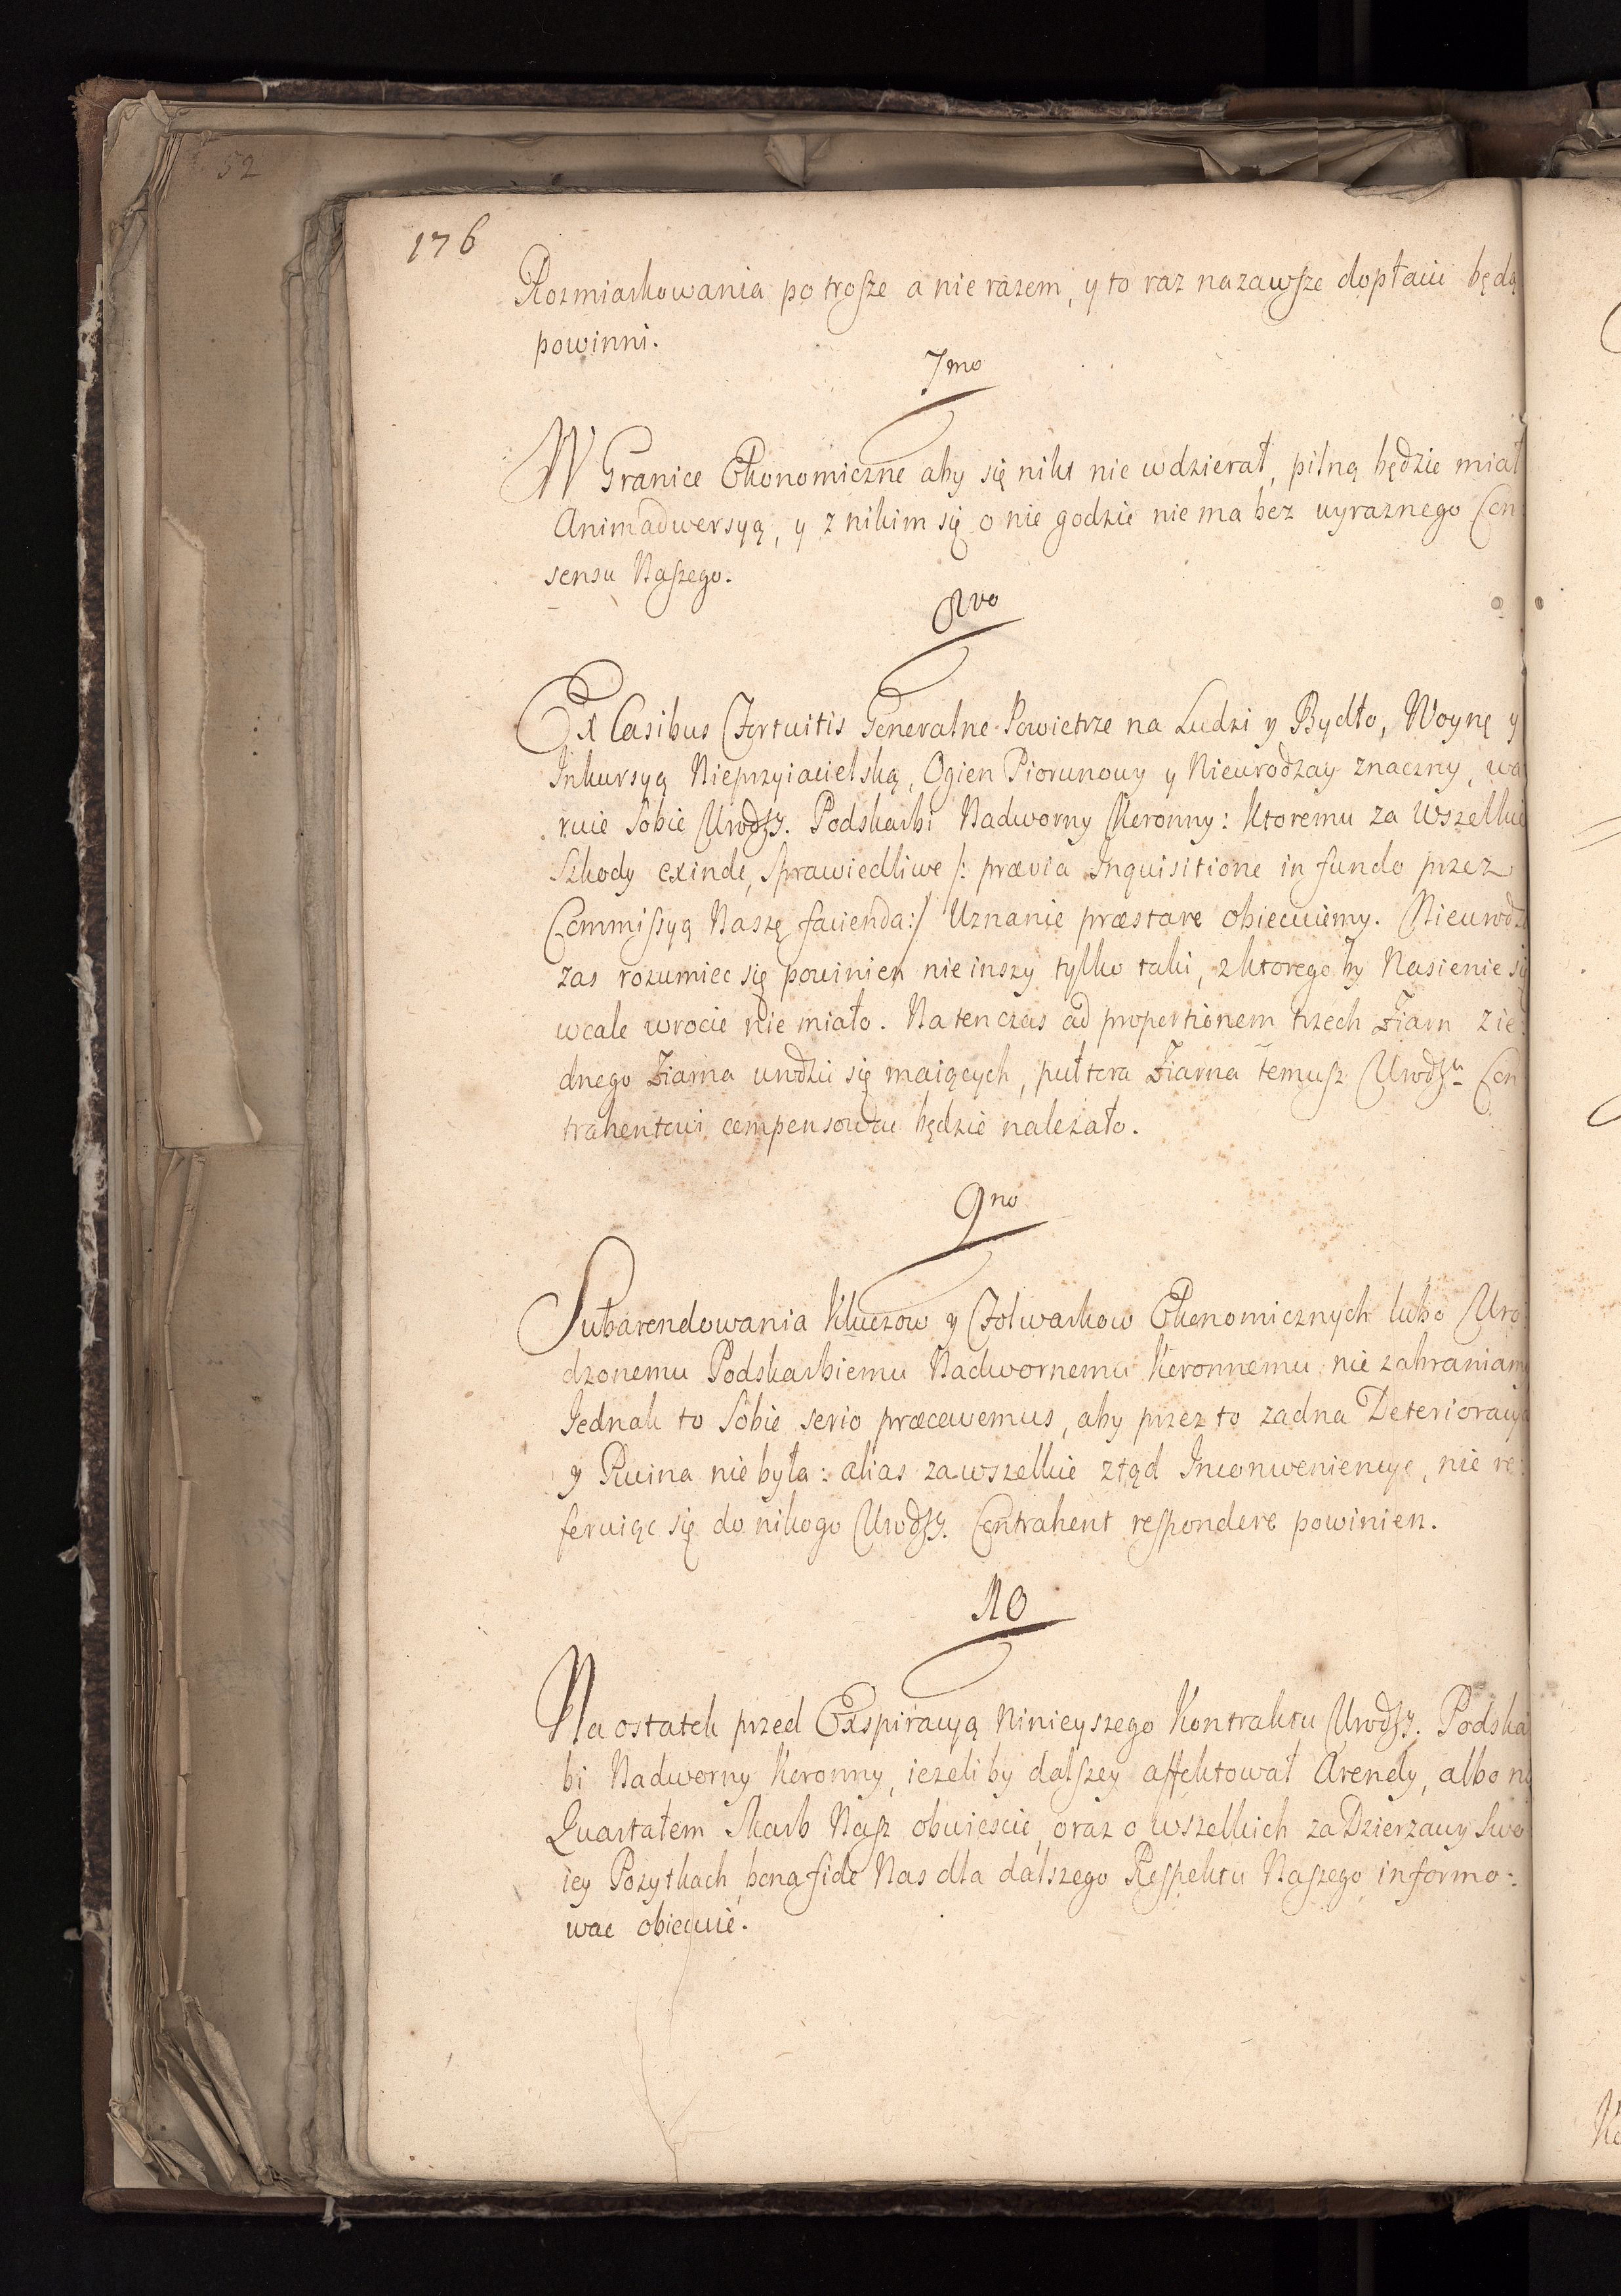 52
176
Rozmiarkowania po trosze a nie razem, y to raz nazawsze dopłacić będą
powinni.
7mo
W Granice Ekonomiczne aby się nikt nie wdzierał, pilną będzie miał
Animadwersyą, y z nikim się o nie godzić nie ma bez wyraznego Con
sensu Naszego.
8vo
Ex Casibus Fortuitis Generalne Powietrze na Ludzi y Bydło, Woynę y
Inkursyą Nieprzyiacielską, Ogien Piorunowy y Nieurodzay znaczny, wa
ruie Sobie Urodzy. Podskarbi Nadworny Koronny: Ktoremu za wszelkie
Szkody exinde, sprawiedliwe /: prævia Inquisitione in fundo przez
Commissyą Naszę facienda:/ Uznanie præstare obiecuiemy. Nieurodz
zas rozumiec się powinien nie inszy tylko taki, z ktorego by Nasienie się
wcale wrocic nie miało. Na ten czas ad proportionem trzech Ziarn z ie:
dnego Ziarna urodzić się maiących, pułtora Ziarna temusz Urodzu Con
trahentowi compensowac będzie należało.
9no
Subarendowania Kluczow y Folwarkow Ekonomicznych lubo Uro:
dzonemu Podskarbiemu Nadwornemu Koronnemu nie zabraniamy
Jednak to Sobie serio præcavemus, aby przez to zadna Deterioracya
y Ruina nie była: alias za wszelkie ztąd Inconweniencye, nie re:
feruiąc się do nikogo Urodzy. Contrahent respondere powinien.
10
Na ostatek przed Exspiracyą Ninieyszego Kontraktu Urodzy. Podska
bi Nadworny Koronny, iezeli by dalszey affektował Arendy, albo ni
Quartałem Skarb Nasz obwiescić, oraz o wszelkich za Dzierzawy Swo
iey Pozytkach bona fide Nas dla dalszego Respektu Naszego informo:
wac obiecuie.